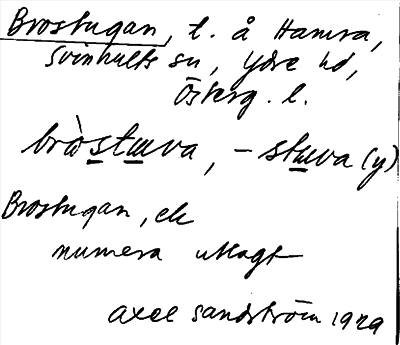 Brostugan, t. å Hamra,
Svinhults sn, Ydre hd,
Österg. l.
bròstɯva, -stɯva (y)
Brostugan, ek
numera utlagt
Axel Sandström 1929